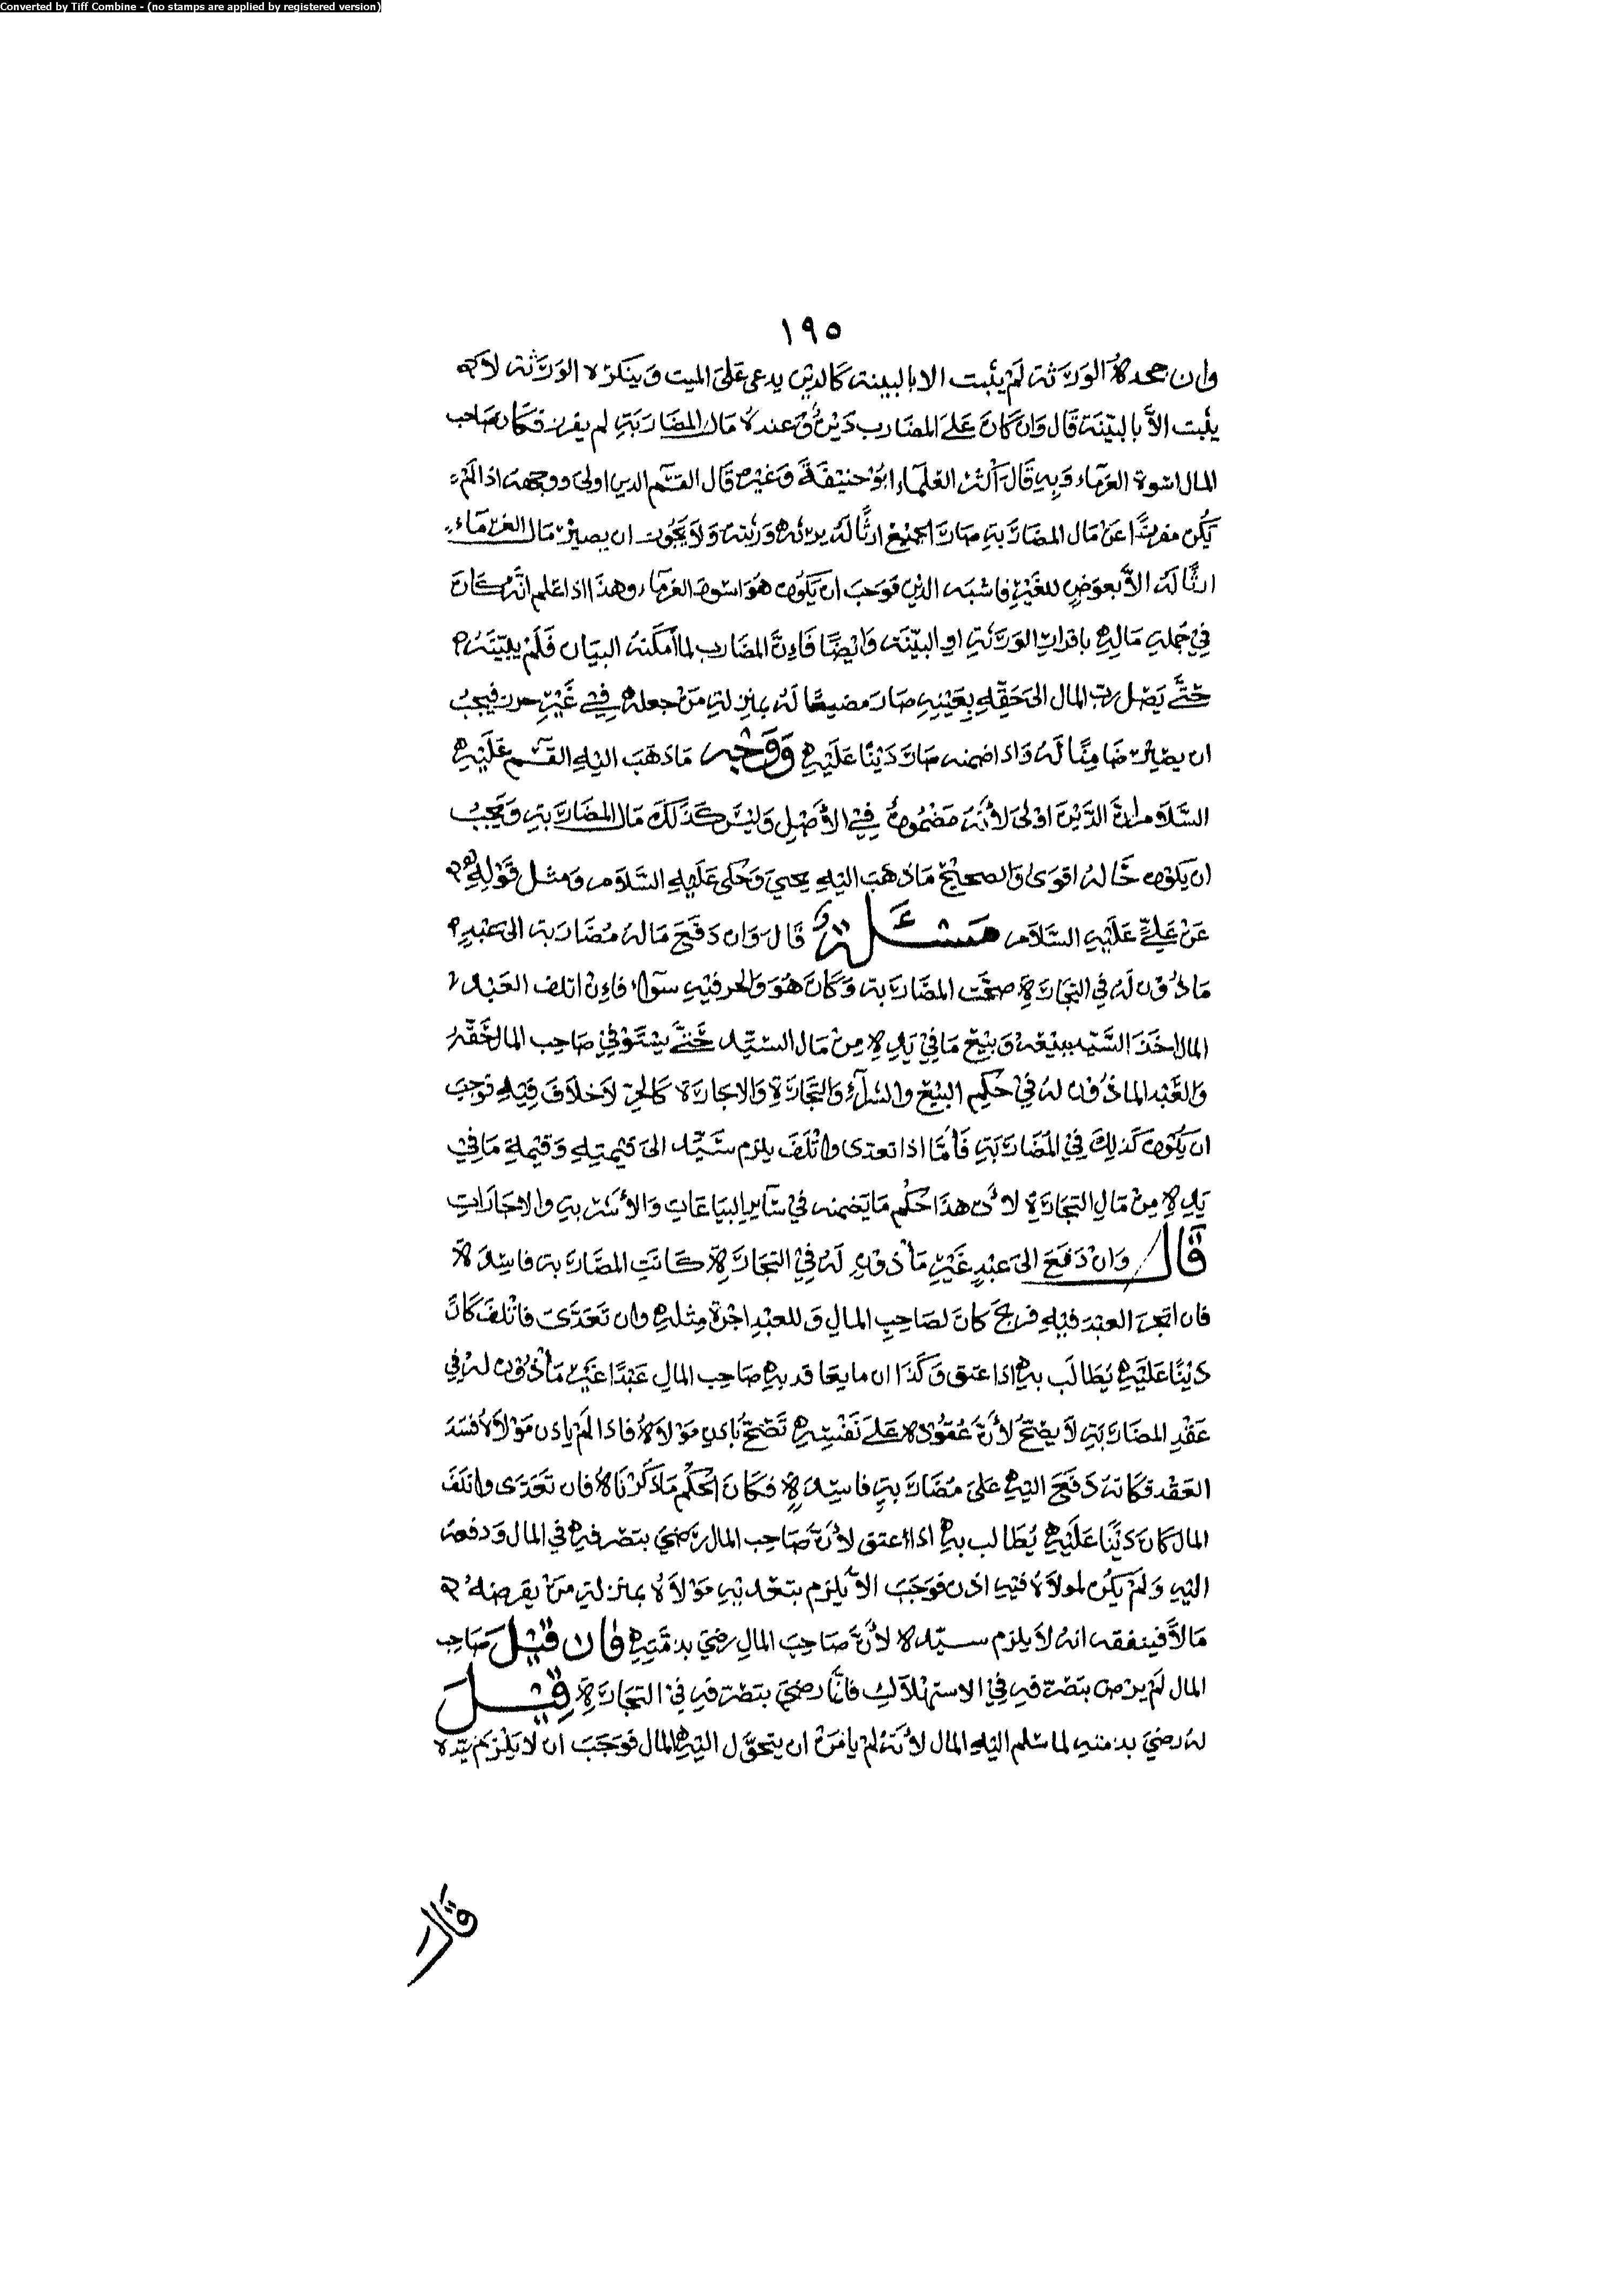 Converted by Tiff Combine - (no stamps are applied by registered version)
١٩٥
وان جحده الورثة لم يثبت الا بالبينة كالدين يدعى على الميت وينكره الورثة لا
يثبت الاّ بالبيّنة قال وان كان على المضارب دين وعنده مال المضاربة لم يفرز فكان صاحب
المال اسوة الغرماء وبه قال اكثر العلماء ابو حنيفة وغيره قال القسم الدين اولى ووجهه اذا لم
يكن مفرزًا عن مال المضاربة صار الجميع ارثًا له يرثه ورثته ولا يجوز ان يصير مال الغرماء
ارثًا له الاّ بعوضٍ للغير فاشبه الدين فوجب ان يكون هو اسوة الغرماء وهذا اذا علم انّه كان
في جملة ماله باقرار الورثة او البيّنة وايضًا فان المضارب لما امكنه البيان فلم يبيّنه
حتّى يصل ربّ المال الى حقّه بعينه صار مضيعًا له بمنزلة من جعله في غير حرز فيجب
ان يصير ضامنًا له واذا ضمنه صار دينًا عليه ووجه ما ذهب اليه القسم عليه
السلام ان الدّين اولى لانّه مضمون في الاصل وليس كذلك مال المضاربة ويجب
ان يكون حاله اقوى والصحيح ما ذهب اليه يحيى وحكى عليه السلام ومثل قوله
عن عليّ عليه السلام مسئلة قال وان دفع ماله مضاربة الى عبدٍ
ماذون له في التجارة صحّت المضاربة وكان هو والحر فيه سوآء فان اتلف العبد
المال اخذ السيّد ببيعه وبيع ما في يده من مال السيّد حتّى يستوفي صاحب المال حقّه
والعبد الماذون له في حكم البيع والشرآء والتجارة والاجارة كالحرّ لا خلاف فيه فوجب
ان يكون كذلك في المضاربة فأمّا اذا تعدى واتلف يلزم سيّده الى قيمته وقيمة ما في
يده من مال التجارة لان هذا حكم ما يضمنه في سآير البياعات والأشربة والاجارات
قال وان دفع الى عبدٍ غير مأذون له في التجارة كانت المضاربة فاسدة
فان اتجر العبد فيه فربح كان لصاحب المال وللعبد اجرة مثله وان تعدّى فاتلف كان
دينًا عليه يطالب به اذا عتق وكذا ان ما يعاقد به صاحب المال عبدًا غير مأذون له في
عقد المضاربة لا يصحّ لانّ عقوده على نفسه تصحّ باذن مولاه فاذا لم ياذن مولاه فسد
العقد فكانه دفع اليه على مضاربة فاسدة فكان الحكم ما ذكرناه فان تعدى واتلف
المال كان دينًا عليه يطالب به اذا اعتق لانّ صاحب المال رضي بتصرفه في المال ودفعه
اليه ولم يكن لمولاه فيه اذن فوجب الاّ يلزم بتعديه مولاه بمنزلة من يقرضه
مالاً فينفقه انه لا يلزم سيّده لانّ صاحب المال رضي بذمّته فان قيل صاحب
المال لم يرض بتصرّفه في الاستهلاك فانّما رضي بتصرّفه في التجارة قيل
له رضي بذمته لما سلم اليه المال لانّه لم يامن ان يتحوّل اليه المال فوجب ان لا يلزم سيّده
قال